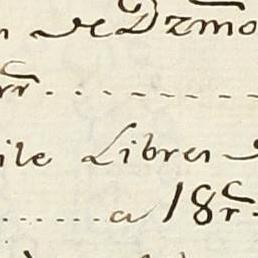 de Dzm̃o
rr̃ . . - - - - -
ile Libres
. . . . . . . a 18 r̃.